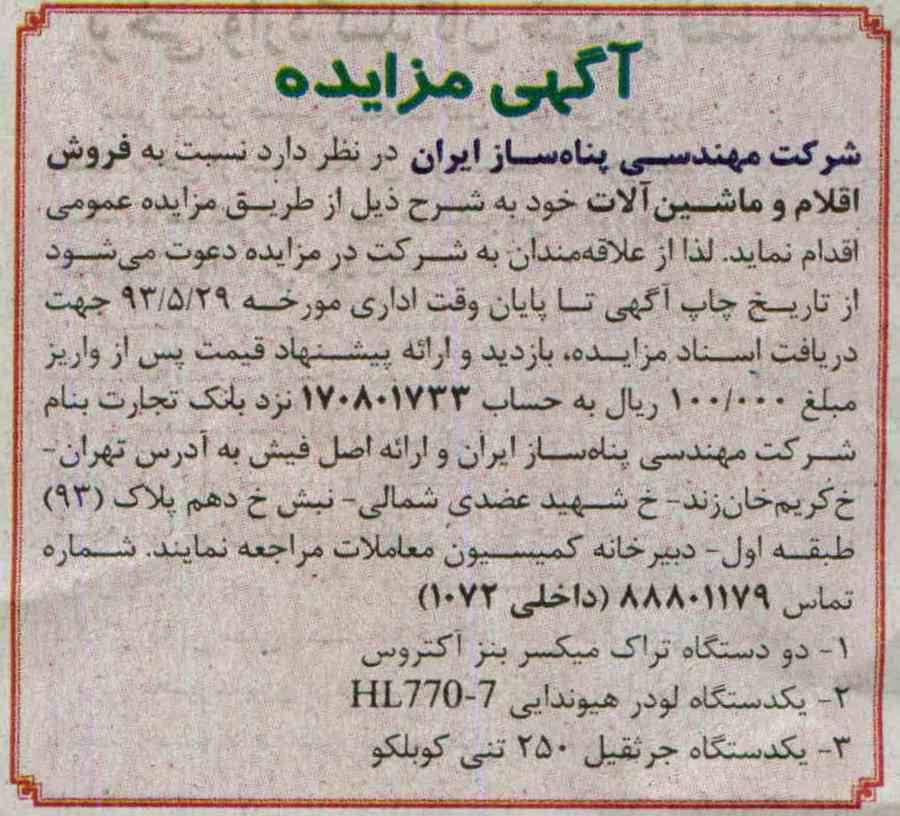 آگهی مزایده
شرکت مهندسی پناه‌ساز ایران در نظر دارد نسبت به فروش
اقلام و ماشین‌آلات خود به شرح ذیل از طریق مزایده عمومی
اقدام نماید. لذا از علاقه‌مندان به شرکت در مزایده دعوت می‌شود
از تاریخ چاپ آگهی تا پایان وقت اداری مورخه ۹۳/۵/۲۹ جهت
دریافت اسناد مزایده، بازدید و ارائه پیشنهاد قیمت پس از واریز
مبلغ ۱۰۰/۰۰۰ ریال به حساب ۱۷۰۸۰۱۷۳۳ نزد بانک تجارت بنام
شرکت مهندسی پناه‌ساز ایران و ارائه اصل فیش به آدرس تهران-
خ‌کریم‌خان‌زند- خ شهید عضدی شمالی- نبش خ دهم پلاک (۹۳)
طبقه اول- دبیرخانه کمیسیون معاملات مراجعه نمایند. شماره
تماس ۸۸۸۰۱۱۷۹ (داخلی ۱۰۷۲)
۱- دو دستگاه تراک میکسر بنز آکتروس
۲- یکدستگاه لودر هیوندایی HL770-7
۳- یکدستگاه جرثقیل ۲۵۰ تنی کوبلکو